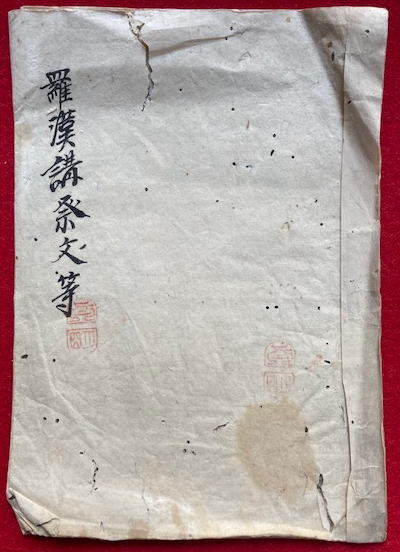 羅漢講祭文等